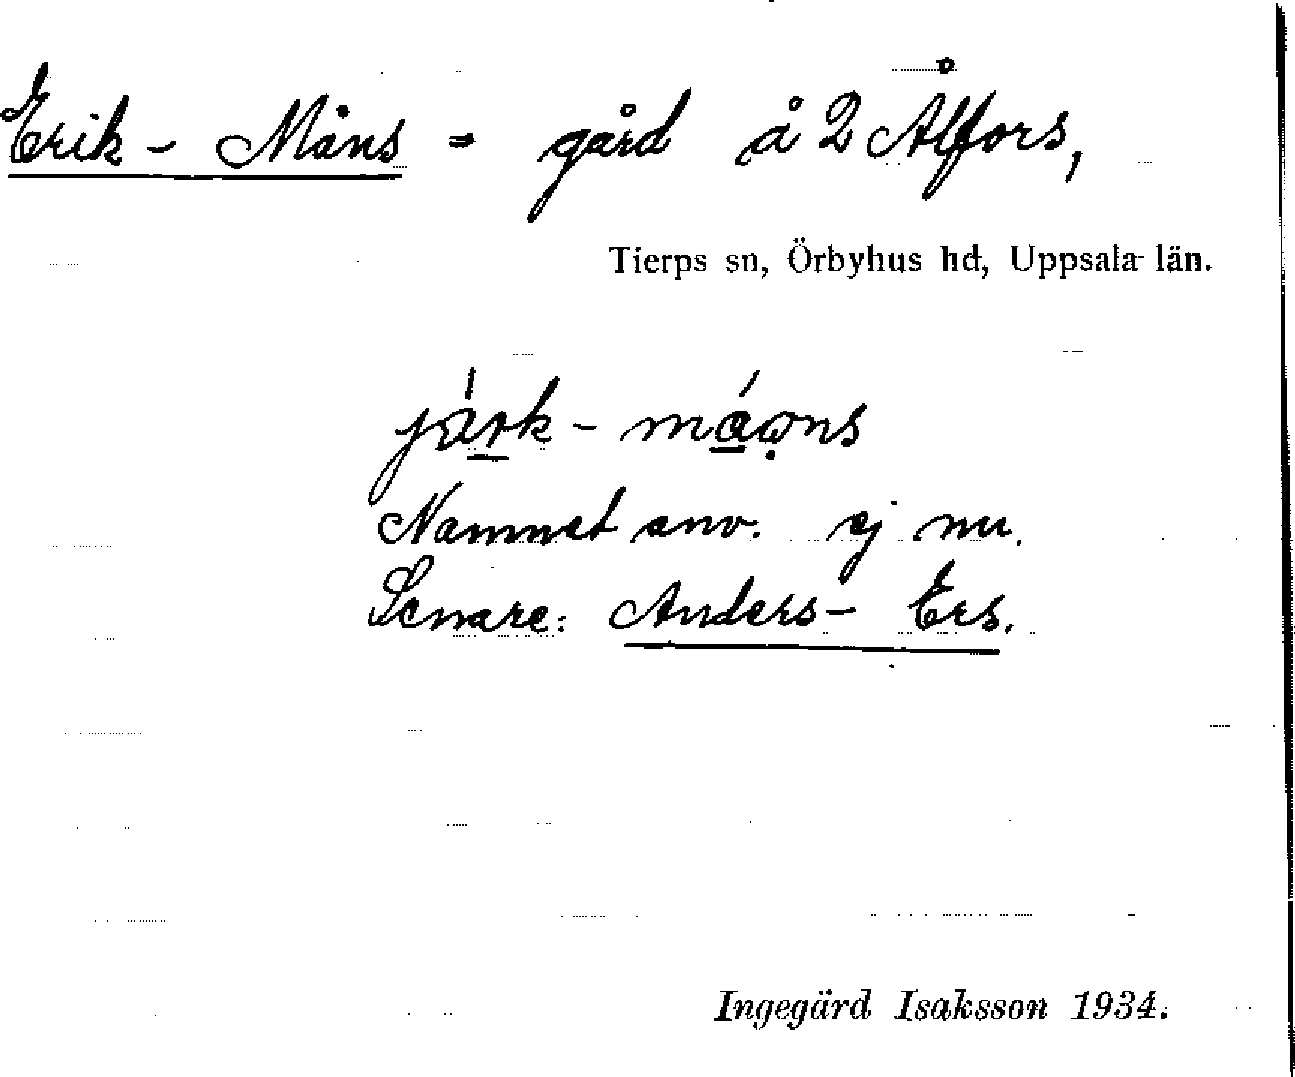 Erik - Måns = gård å 2 Ålfors,
Tierps sn, Örbyhus hd, Uppsala län.
järk - máo̤ns
Namnet anv. ej nu.
Senare: Anders- Ers.
Ingegärd Isaksson 1934.